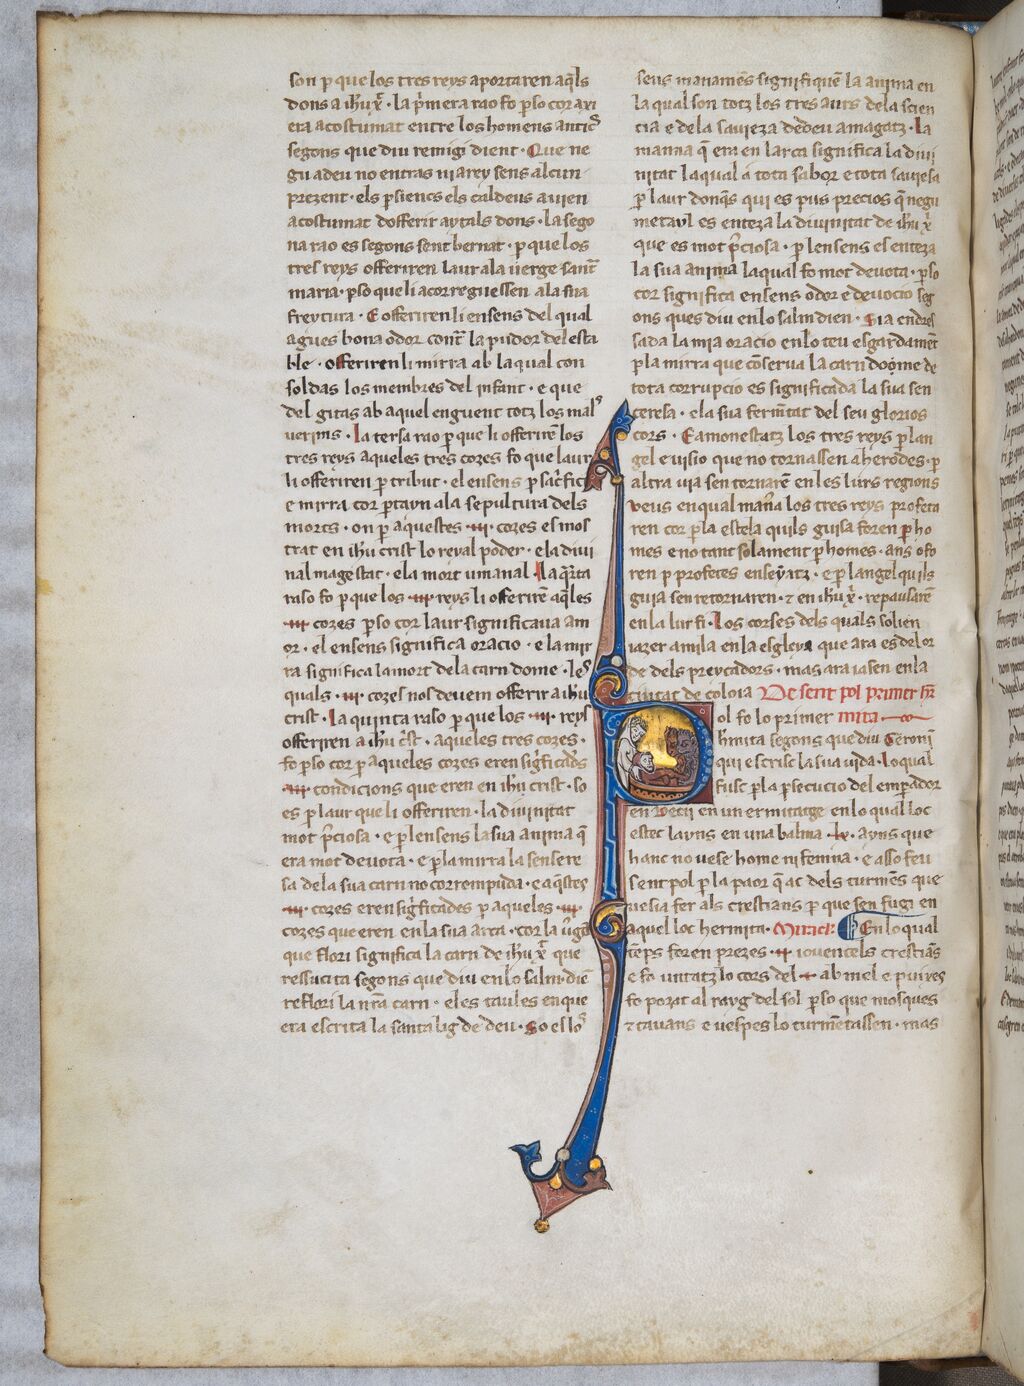 son p que los tres reys aportaren aq̄ls
dons a ih'u x̄. la p'mera rao fo p so cor axi
era acostumat entre los homens antic̄s
segons que diu remigi dient. Que ne
gu a deu no entras ni a rey sens alcun
prezent. els p siencs els caldeus avien
acostumat dofferir aytals dons. la sego
na rao es segons sent bernat. p que los
tres reys offeriren laur ala uerge sant̄
maria. p so que li acorreguessen ala sua
freytura. E offeriren li ensens del qual
agues bona odor cont̄ la pudor del esta
ble. offeriren li mirra ab la qual con
soldas los membres del infant. e que
del gitas ab aquel enguent totz los mal's
uerms. la tersa rao p que li offerirē los
tres reys aqueles tres cozes fo que laur
li offeriren p tribut. el ensens p sac'fici
e mirra cor p tayn ala sepultura dels
morts. on p aquestes .iii. cozes es mos
trat en ih'u crist lo reyal poder. ela diui
nal magestat. ela mort umanal. la q̄rta
raso fo p que los .iii. reys li offerirē aq̄les
.iii. cozes p so cor laur significaua am
or. el ensens significa oracio. e la mir
ra significa la mort dela carn dome. les
quals .iii. cozes nos deuem offerir a ih'u
crist. la quinta raso p que los .iii. reys
offeriren a ih'u c'st. aqueles tres cozes.
fo p so cor p aqueles cozes eren sig'ficad's
.iii. condicions que eren en ih'u crist. so
es p laur que li offeriren. la diuinitat
mot p'ciosa. e p lensens la sua anima q̄
era mot deuota. e p la mirra la sensere
sa dela sua carn no corrempuda. e aq̄stes
.iii. cozes eren sig'ficades p aqueles .iii.
cozes que eren en la sua arca. cor la u'ga
que flori significa la carn de ih'u x̄ que
ressucita segons que diu en lo salm diē
reflori la n'ra carn. eles taules en que
era escrita la santa lig de deu. so es los
seus manamēs signifiquē la anima en
la qual son totz los tresaurs dela scien
cia e dela sauieza de deu amagatz. la
manna q̄ era en larca significa la diui
nitat la qual a tota sabor e tota sauiesa
p laur donq̄s qui es pus precios q̄ negu
metayl es enteza la diuinitat de ih'u x̄
que es mot p'ciosa. p lensens es enteza
la sua anima la qual fo mot deuota. p so
cor significa ensens odor e deuocio seg
ons ques diu en lo salm dien. Sia endres
sada la mia oracio en lo teu esgardament
p la mirra que cōserua la carn dome de
tota corrupcio es significada la sua sen
ceresa. ela sua ferm̄tat del seu glorios
cors. E amonestatz los tres reys p lan
gel e uisio que no tornassen a herodes. p
altra uia sen tornarē en les lurs regions
veus en qual mana los tres reys profeta
ren cor p la estela quils guisa foren p ho
mes e no tant solament p homes. ans o fo
ren p profetes enseyatz. e p langel quils
guia sen retornaren. ⁊ en ih'u x̄. repausarē
en la lur fi. Los corses dels quals solien
iazer a mila en la esgleya que ara es del or
de dels preycadors. mas ara iasen en la
ciutat de coloia De sent pol primer h'
P ol fo lo primer mita.
h'mita segons que diu Geronī
qui escrisc la sua uida. lo qual
fusc p la p secucio del emperador
en un ermitatge en lo qual loc
estec layns en una balma .lx. ayns que
hanc no uese home ni femina. e asso feu
sent pol p la paor q̄ ac dels turmēs que
uesia fer als crestians p que sen fugi en
aquel loc hermita. Miracle En lo qual
tēps foren prezes .ii. iouencels crestiās
e fo untatz lo cors del .i. ab mel e puixes
fo pozat al rayg del sol p so que mosques
⁊ tauans e uespes lo turmētassen. mas